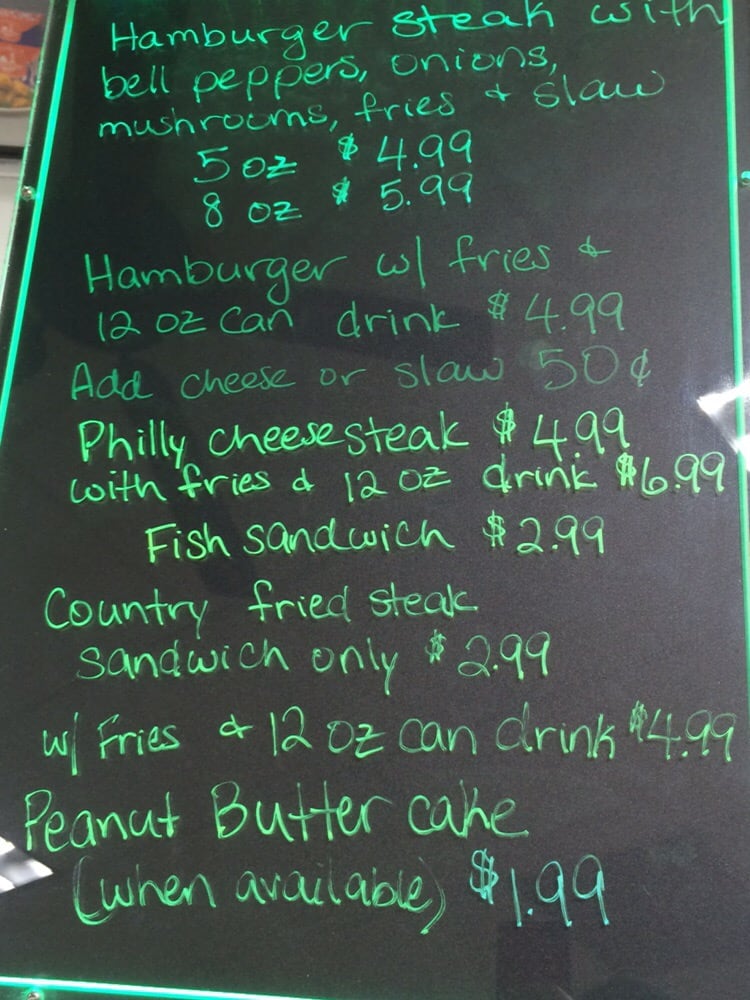 Hamburger steak with
bell peppers, onions,
mushrooms, fries & slaw
5 oz $ 4.99
8 oz $ 5.99
Hamburger w/ fries &
12 oz can drink $ 4.99
Add cheese or slaw 50¢
Philly cheesesteak $ 4.99
with fries & 12 oz drink $6.99
Fish sandwich $2.99
Country fried steak
sandwich only $ 2.99
w/ Fries & 12 oz can drink $4.99
Peanut Butter cake
(when available) $1.99